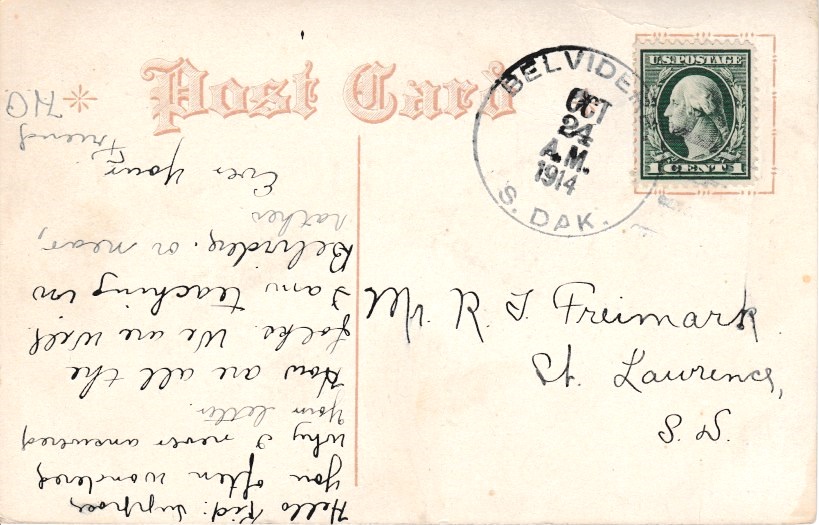 Post Card
BELVIDE
OCT
24
A.M.
1914
S. DAK.
U.S. POSTAGE
1 CENT 1
Mr. R. F. Freimark
St. Lawrence,
S. D.
Hello Kid: Suppose
you often wondered
why I never answered
your letter.
How are all the
folks. We are well.
I am teaching in
Belvidere, or near,
rather
Ever your
Friend